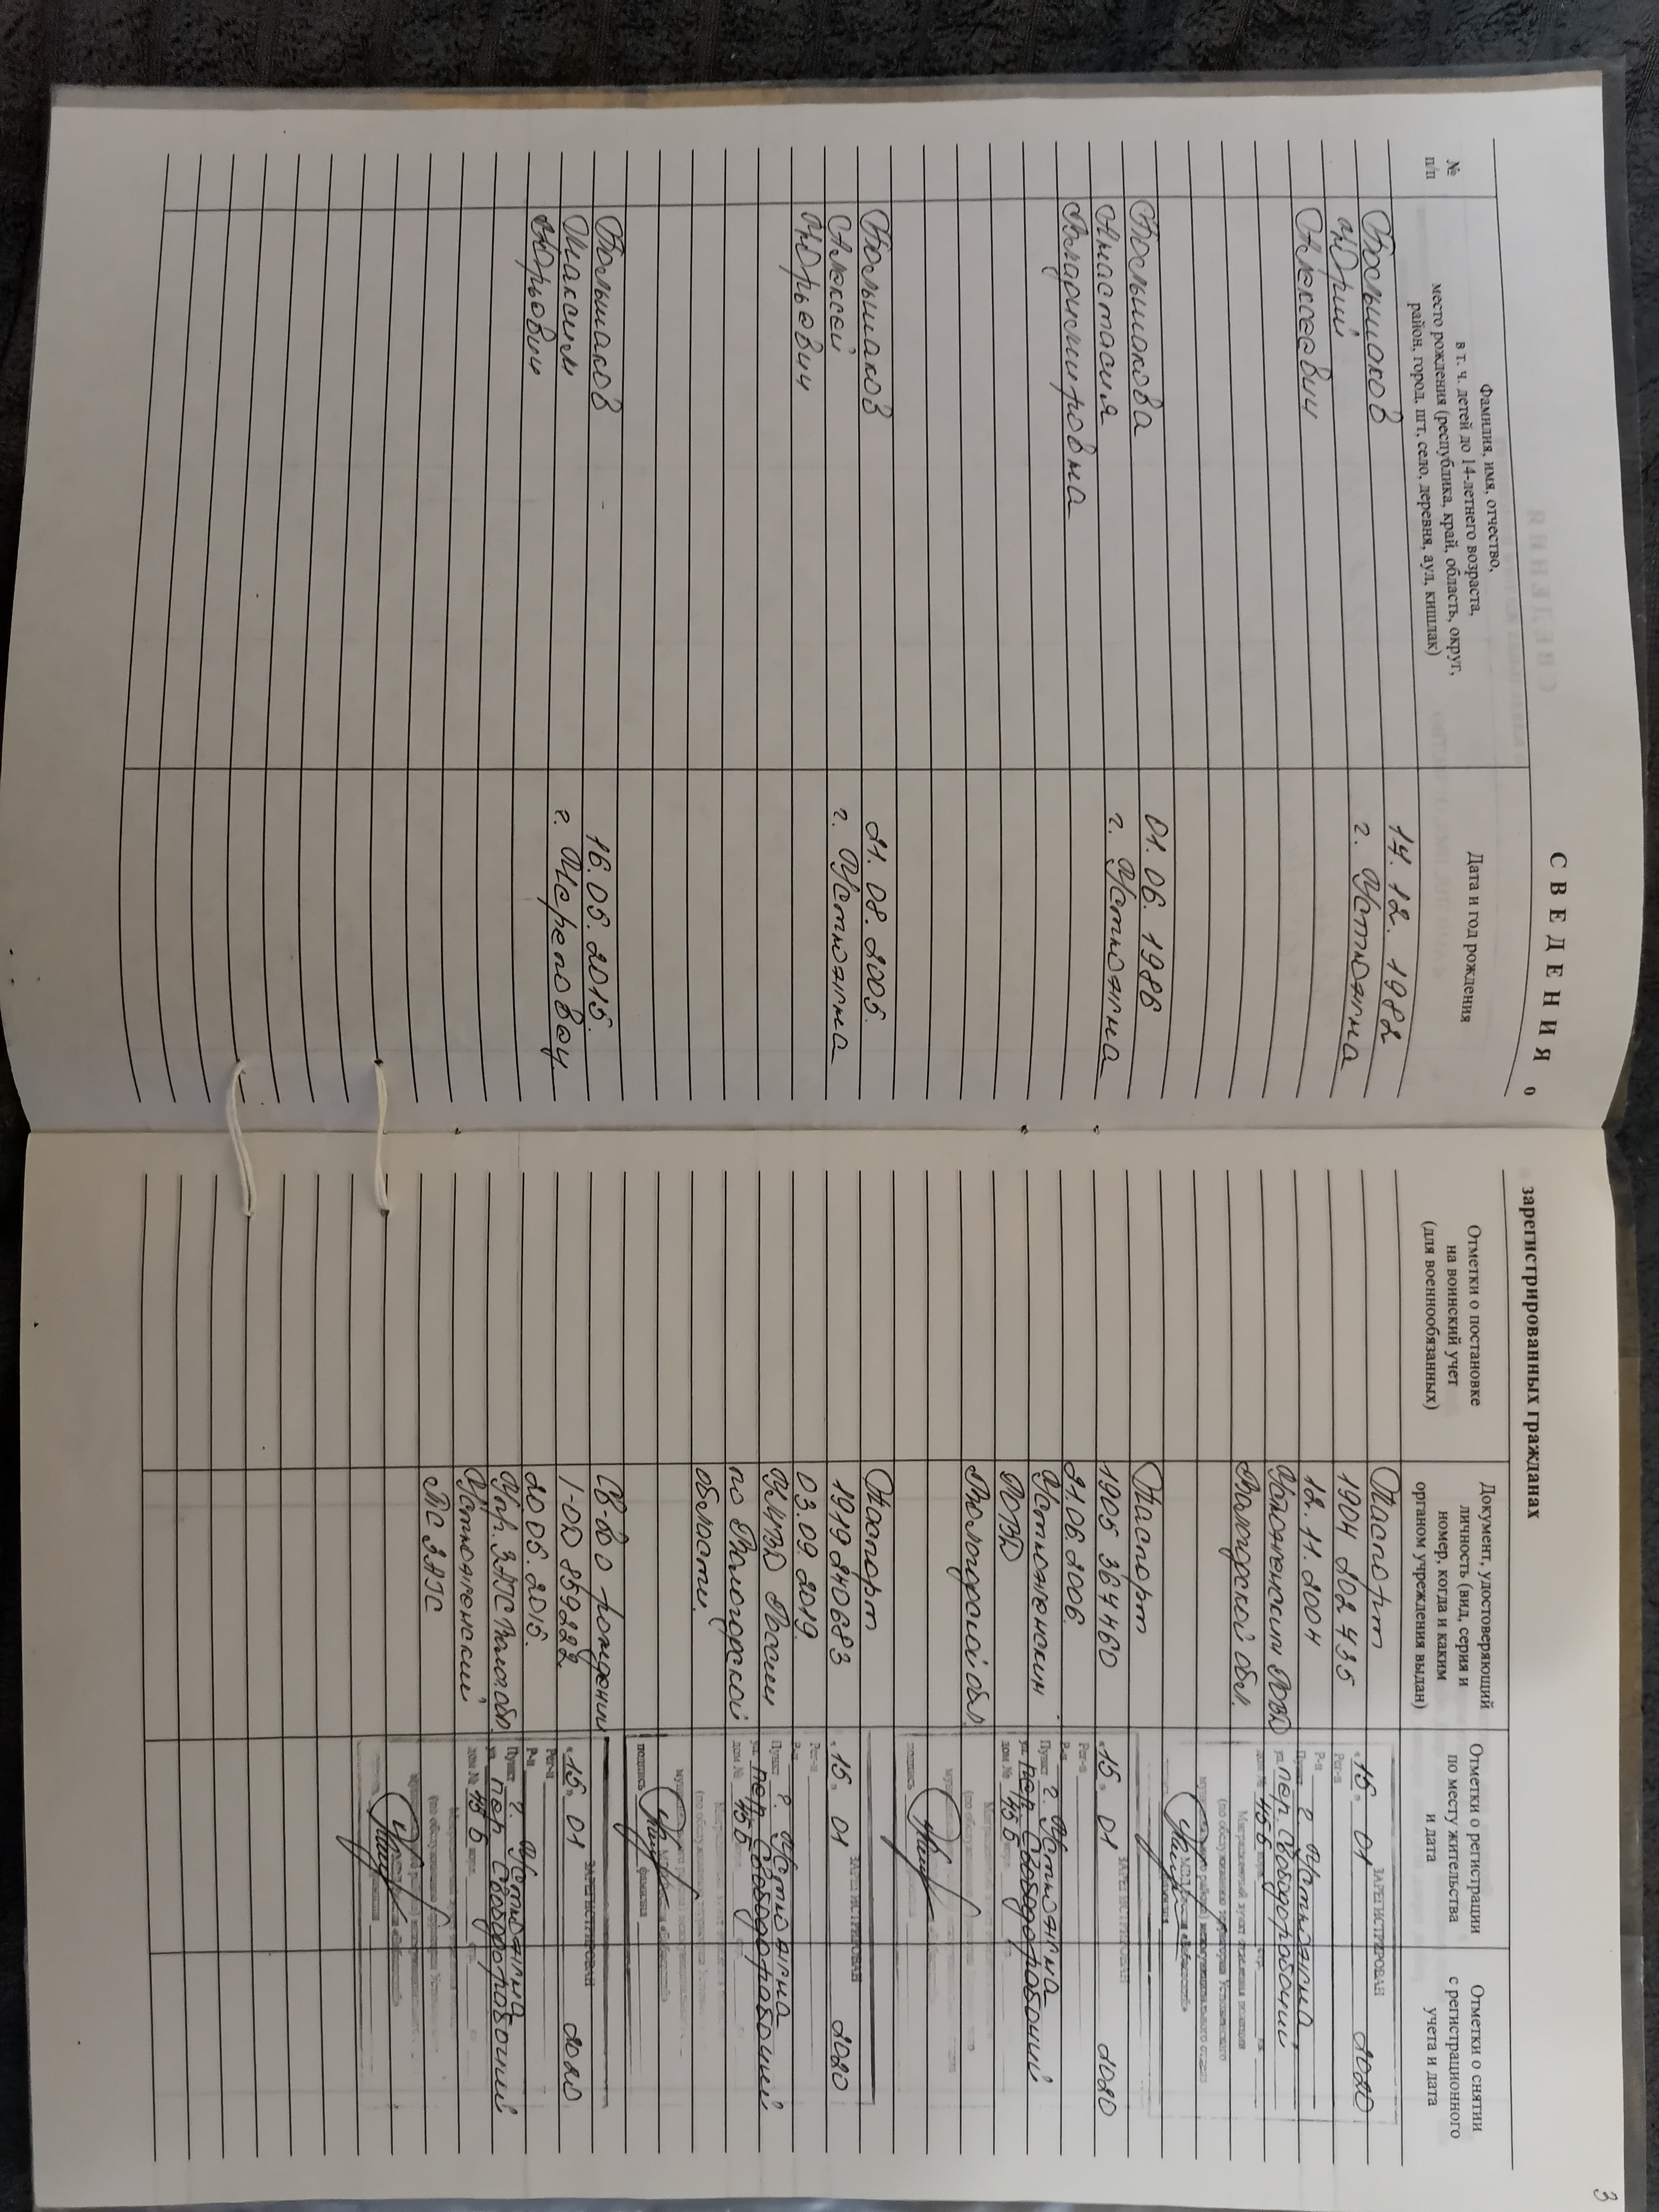 СВЕДЕНИЯ о
№
п/п
Фамилия, имя, отчество,
в т. ч. детей до 14-летнего возраста,
место рождения (республика, край, область, округ,
район, город, пгт, село, деревня, аул, кишлак)
Дата и год рождения
Большаков
Юрий
Алексеевич
14.12.1982
г. Устюжна
Большакова
Анастасия
Владимировна
01.06.1986
г. Устюжна
Большаков
Алексей
Юрьевич
21.08.2005.
г. Устюжна
Большаков
Максим
Юрьевич
16.05.2015.
г. Череповец
зарегистрированных граждан
3
Отметки о постановке
на воинский учет
(для военнообязанных)
Документ, удостоверяющий
личность (вид, серия и
номер, когда и каким
органом учреждения выдан)
Отметки о регистрации
по месту жительства
и дата
Отметки о снятии
с регистрационного
учета и дата
Паспорт
1904 202 435
12.11.2004
Устюженским РОВД
Вологодской обл.
ЗАРЕГИСТРИРОВАН
15. 01 2020
Рег-н
Р-н
Пункт г. Устюжна,
ул. пер. Свободорабочий
дом № 45б
Паспорт
1905 364460
21.06.2006.
Устюженским
РОВД
Вологодской обл.
ЗАРЕГИСТРИРОВАН
15. 01 2020
Рег-н
Р-н
Пункт г. Устюжна
ул. пер. Свободорабочий
дом № 45б
Паспорт
1919 240683
03.09.2019.
УМВД России
по Вологодской
области.
ЗАРЕГИСТРИРОВАН
15. 01 2020
Рег-н
Р-н
Пункт г. Устюжна
ул. пер. Свободорабочий
дом № 45б
подпись фамилия
Св-во о рождении
I-ОД 859222
20.05.2015.
Упр. ЗАГС Волог.обл.
Устюженский
ТС ЗАГС
ЗАРЕГИСТРИРОВАН
15. 01 2020
Рег-н
Р-н
Пункт г. Устюжна
ул. пер. Свободорабочий
дом № 45б